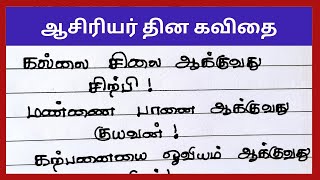 ஆசிரியர் தின கவிதை
கல்லை சிலை ஆக்குவது
சிற்பி !
மண்ணை பானை ஆக்குவது
குயவன் !
கற்பனையை ஓவியம் ஆக்குவது